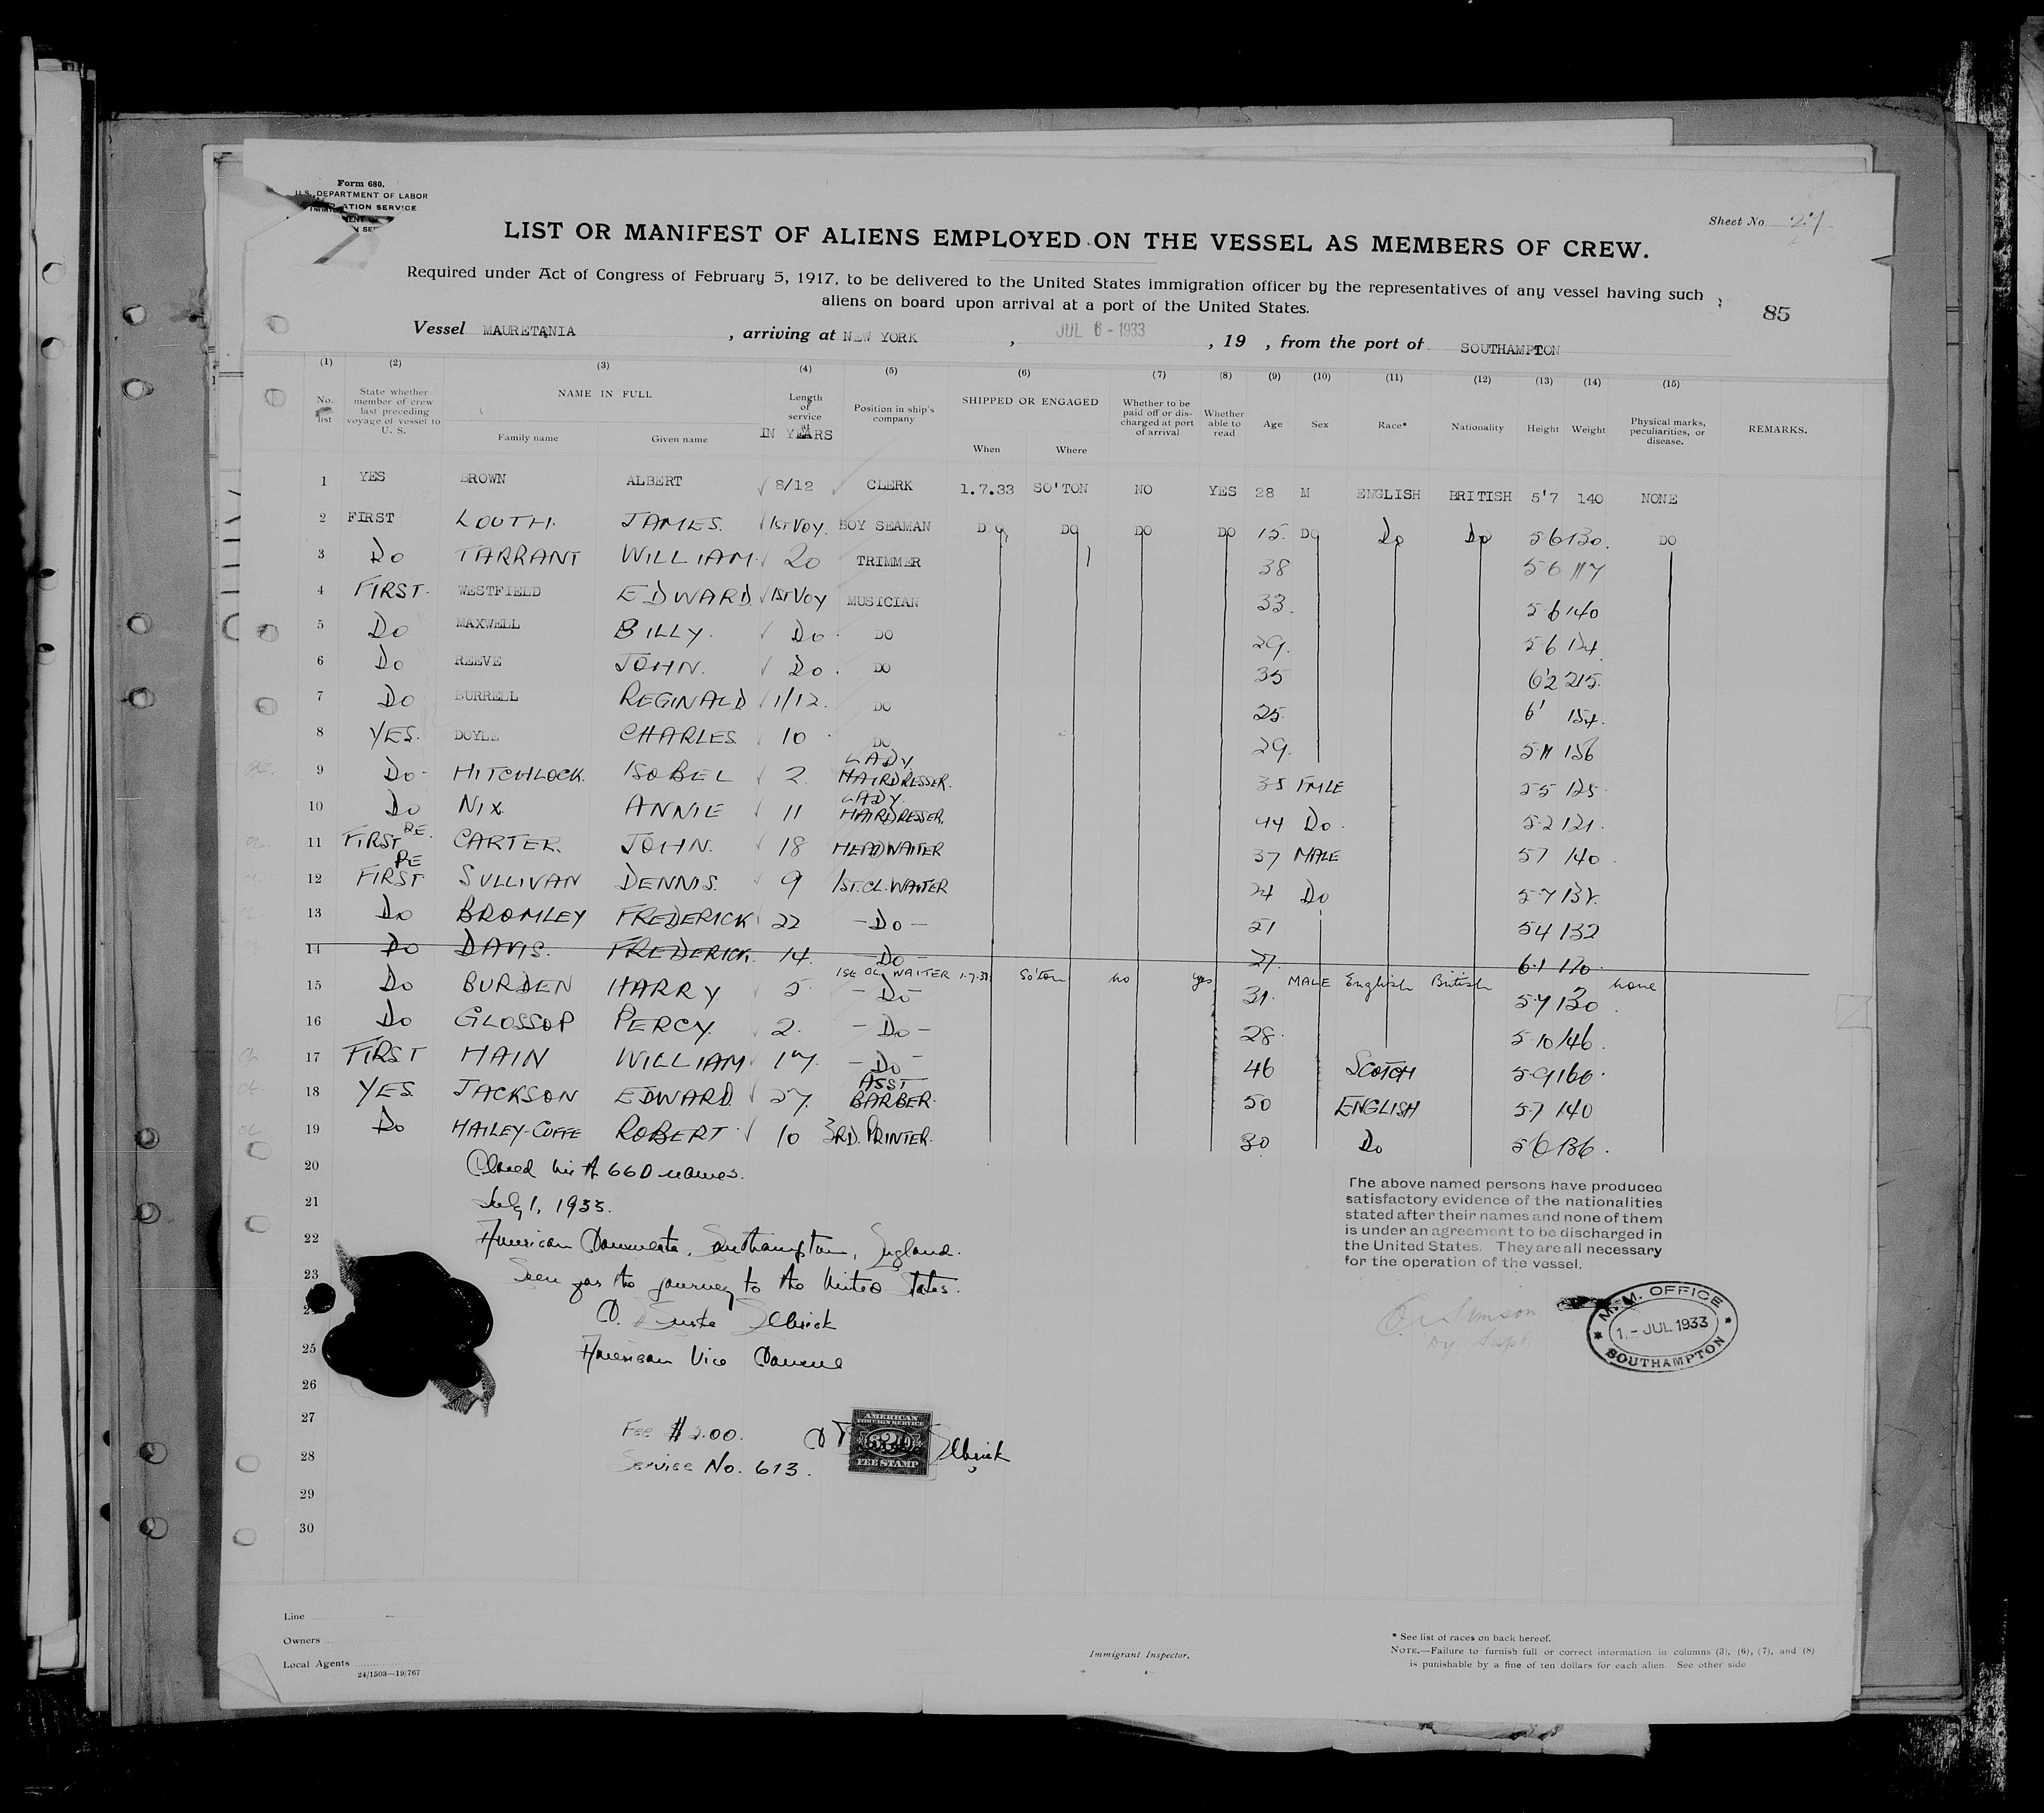 Form 680.
U.S. DEPARTMENT OF LABOR
ATION SERVICE
Sheet No 24
LIST OR MANIFEST OF ALIENS EMPLOYED ON THE VESSEL AS MEMBERS OF CREW.
Required under Act of Congress of February 5, 1917, to be delivered to the United States immigration officer by the representatives of any vessel having such
aliens on board upon arrival at a port of the United States.
85
Vessel MAURETANIA, arriving at NEW YORK, JUL 6 - 1933, 19 , from the port of SOUTHAMPTON
(1) (2) (3) (4) (5) (6) (7) (8) (9) (10) (11) (12) (13) (14) (15)
No. list State whether member of crew last preceding voyage of vessel to U. S. NAME IN FULL Family name Given name Length of service at IN YEARS Position in ship's company SHIPPED OR ENGAGED When Where Whether to be paid off or discharged at port of arrival Whether able to read Age Sex Race* Nationality Height Weight Physical marks, peculiarities, or disease. REMARKS.
1 YES BROWN ALBERT 8/12 CLERK 1.7.33 SO'TON NO YES 28 M ENGLISH BRITISH 5'7 140 NONE
2 FIRST LOUTH. JAMES. 1ST VOY. BOY SEAMAN DO DO DO DO 15. DO Do Do 5 6 130. DO
3 Do TARRANT WILLIAM. 20 TRIMMER 38 5 6 117
4 FIRST. WESTFIELD EDWARD. 1ST VOY MUSICIAN 33. 5 6 140
5 Do MAXWELL BILLY. Do. DO 29. 5 6 124.
6 Do REEVE JOHN. Do. DO 35 6'2 215.
7 Do BURRELL REGINALD 1/12. DO 25. 6' 154.
8 YES. DOYLE CHARLES. 10 DO 29. 5 11 156
9 Do HITCHLOCK. ISOBEL 2. LADY HAIRDRESSER. 35 FMLE 5 5 125.
10 Do NIX ANNIE 11 LADY. HAIRDRESSER. 44 Do. 5 2 121.
11 FIRST RE. CARTER. JOHN. 18 HEADWAITER 37 MALE 5 7 140.
12 RE FIRST SULLIVAN DENNIS. 9 1ST. CL. WAITER 24 Do 5 7 138.
13 Do BROMLEY FREDERICK 22 -Do- 21 5 4 132
14 Do DAVIS. FREDERICK. 14. -Do- 27. 6.1 170.
15 Do BURDEN HARRY 5 1st CL. WAITER -Do- 1.7.33 So'ton no yes 31. MALE English British 5 7 130 none
16 Do GLOSSOP PERCY. 2. -Do- 28. 5 10 146.
17 FIRST MAIN WILLIAM 17. -Do- 46 SCOTCH 5 9 160.
18 YES. JACKSON EDWARD. 27. ASST BARBER. 50 ENGLISH 5 7 140
19 Do HAILEY-CUFFE ROBERT. 10 3RD. PRINTER. 30 Do 5 6 136.
20 Closed list of 660 names.
21 July 1, 1933.
22 American Consulate, Southampton, England.
23 Seen for the journey to the United States.
25 American Vice Consul
26
27 Fee $2.00.
28 Service No. 613.
29
30
The above named persons have produced
satisfactory evidence of the nationalities
stated after their names and none of them
is under an agreement to be discharged in
the United States. They are all necessary
for the operation of the vessel.
M.M. OFFICE
1 - JUL 1933
SOUTHAMPTON
AMERICAN
FOREIGN SERVICE
FEE STAMP
Line
Owners
Local Agents
24/1503—19/767
Immigrant Inspector.
* See list of races on back hereof.
NOTE.—Failure to furnish full or correct information in columns (3), (6), (7), and (8)
is punishable by a fine of ten dollars for each alien. See other side